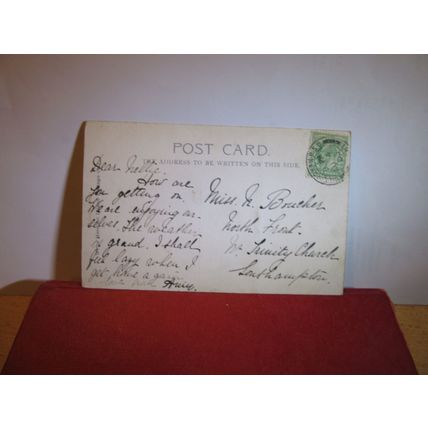 POST CARD.
THE ADDRESS TO BE WRITTEN ON THIS SIDE
Dear Nellie.
How are
you getting on
We are enjoying our
selves. The weather
is grand. I shall
feel lazy when I
get home again
Miss. N. Boucher
North Front
Nr Trinity Church
Southampton.